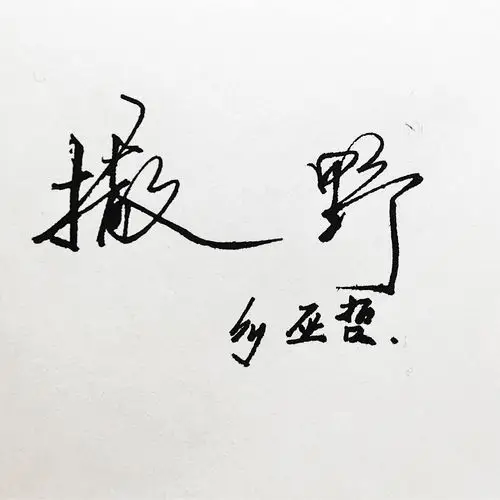 撒野
by 巫哲.